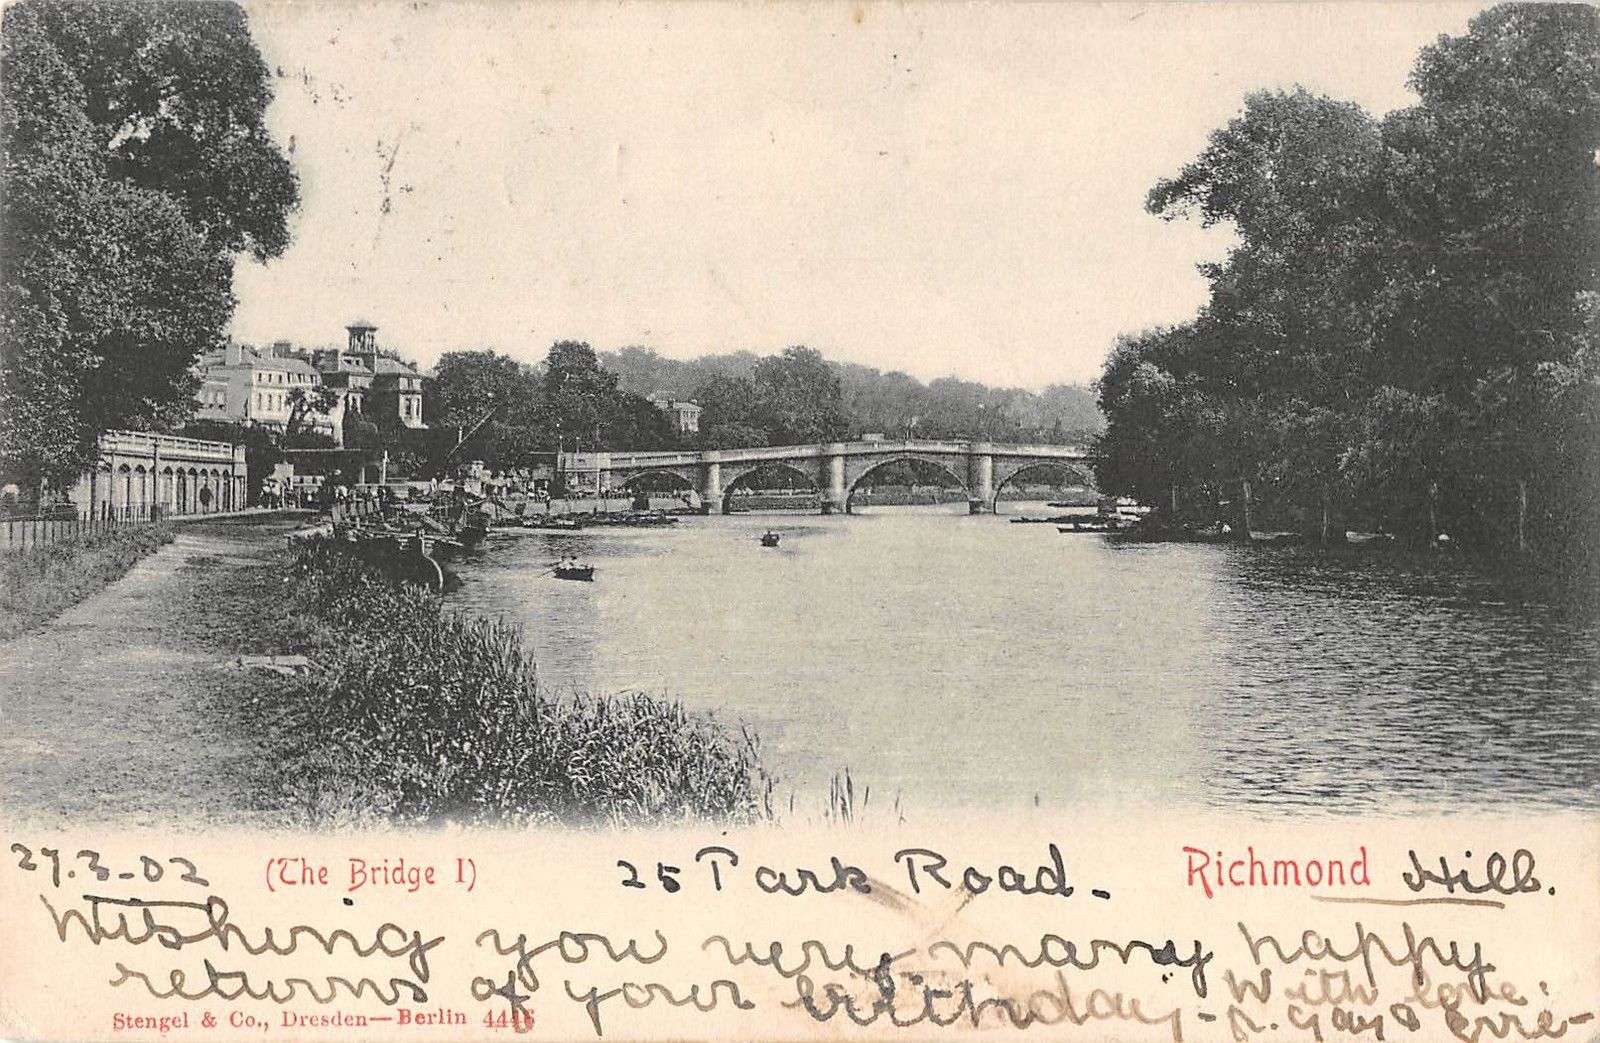 27.3-02 (The Bridge I) 25 Park Road - Richmond Hill.
Wishing you very many happy
returns of your birthday - With love.
Stengel & Co., Dresden—Berlin 4446